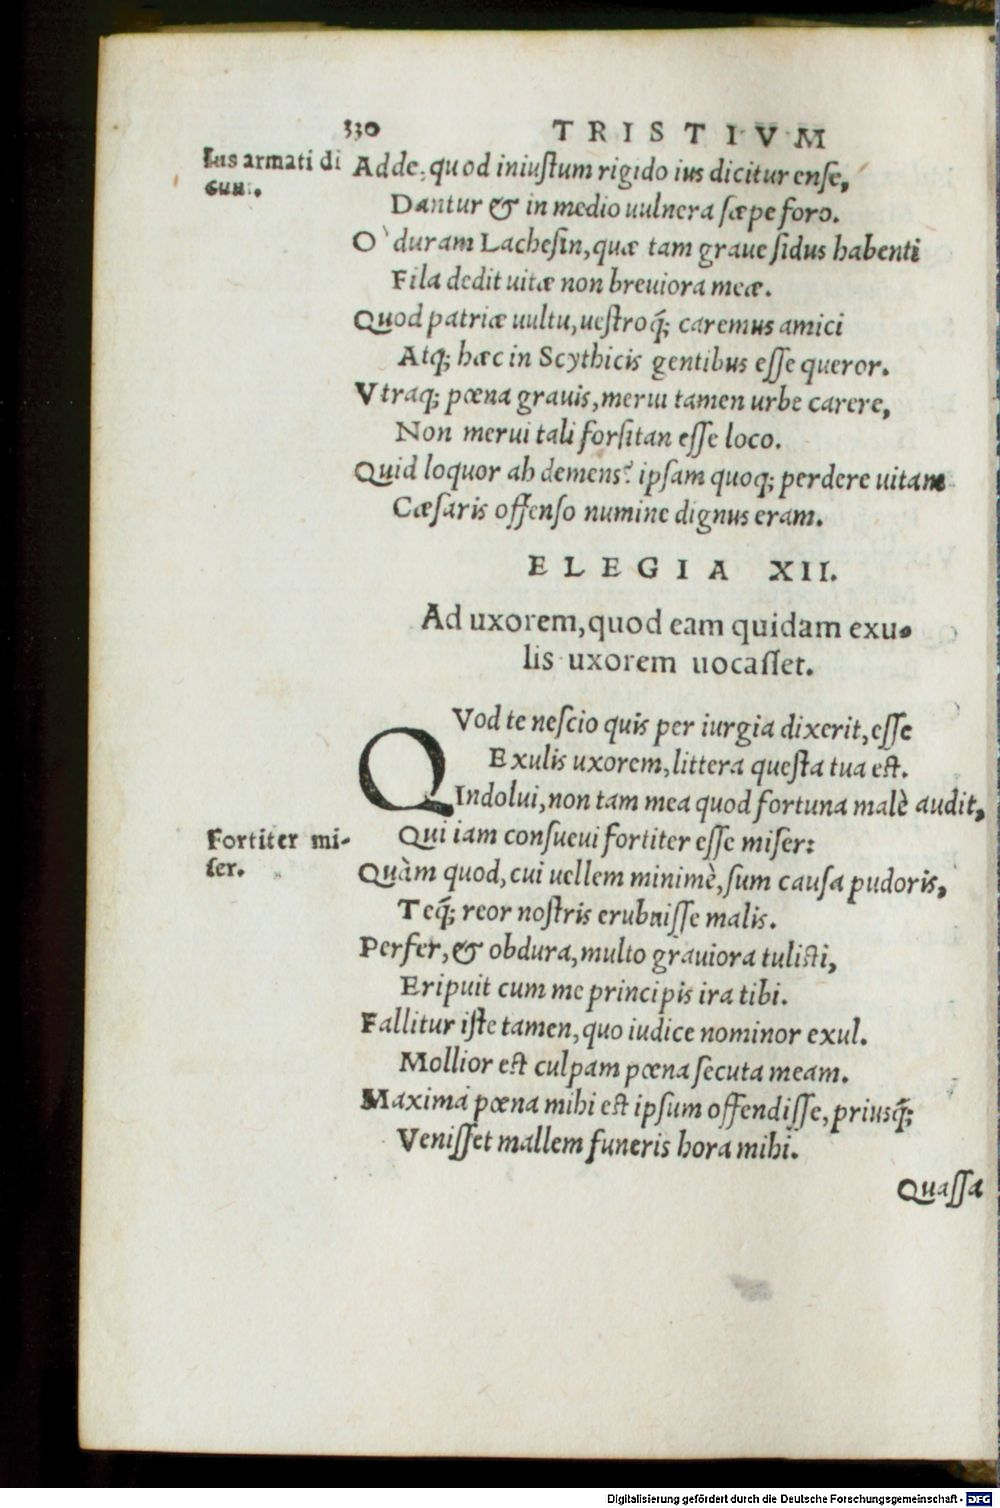 330 TRISTIVM
Ius armati di
cunt.
Adde, quod iniuſtum rigido ius dicitur enſe,
Dantur & in medio uulnera ſæpe foro.
O` duram Lacheſin, quæ tam graue ſidus habenti
Fila dedit uitæ non breuiora meæ.
Quod patriæ uultu, ueſtroq́; caremus amici
Atq; hæc in Scythicis gentibus eſſe queror.
Vtraq; pœna grauis, merui tamen urbe carere,
Non merui tali forſitan eſſe loco.
Quid loquor ah demens? ipſam quoq; perdere uitam
Cæſaris offenſo numine dignus eram.
ELEGIA XII.
Ad uxorem, quod eam quidam exu-
lis uxorem uocaſſet.
QVod te neſcio quis per iurgia dixerit, eſſe
Exulis uxorem, littera queſta tua eſt.
Indolui, non tam mea quod fortuna malè audit,
Fortiter mi-
ſer.
Qui iam conſueui fortiter eſſe miſer:
Quàm quod, cui uellem minimè, ſum cauſa pudoris,
Teq́; reor noſtris erubuiſſe malis.
Perfer, & obdura, multo grauiora tuliſti,
Eripuit cum me principis ira tibi.
Fallitur iſte tamen, quo iudice nominor exul.
Mollior eſt culpam pœna ſecuta meam.
Maxima pœna mihi eſt ipſum offendiſſe, priusq́;
Veniſſet mallem funeris hora mihi.
Quaſſa
Digitalisierung gefördert durch die Deutsche Forschungsgemeinschaft - DFG